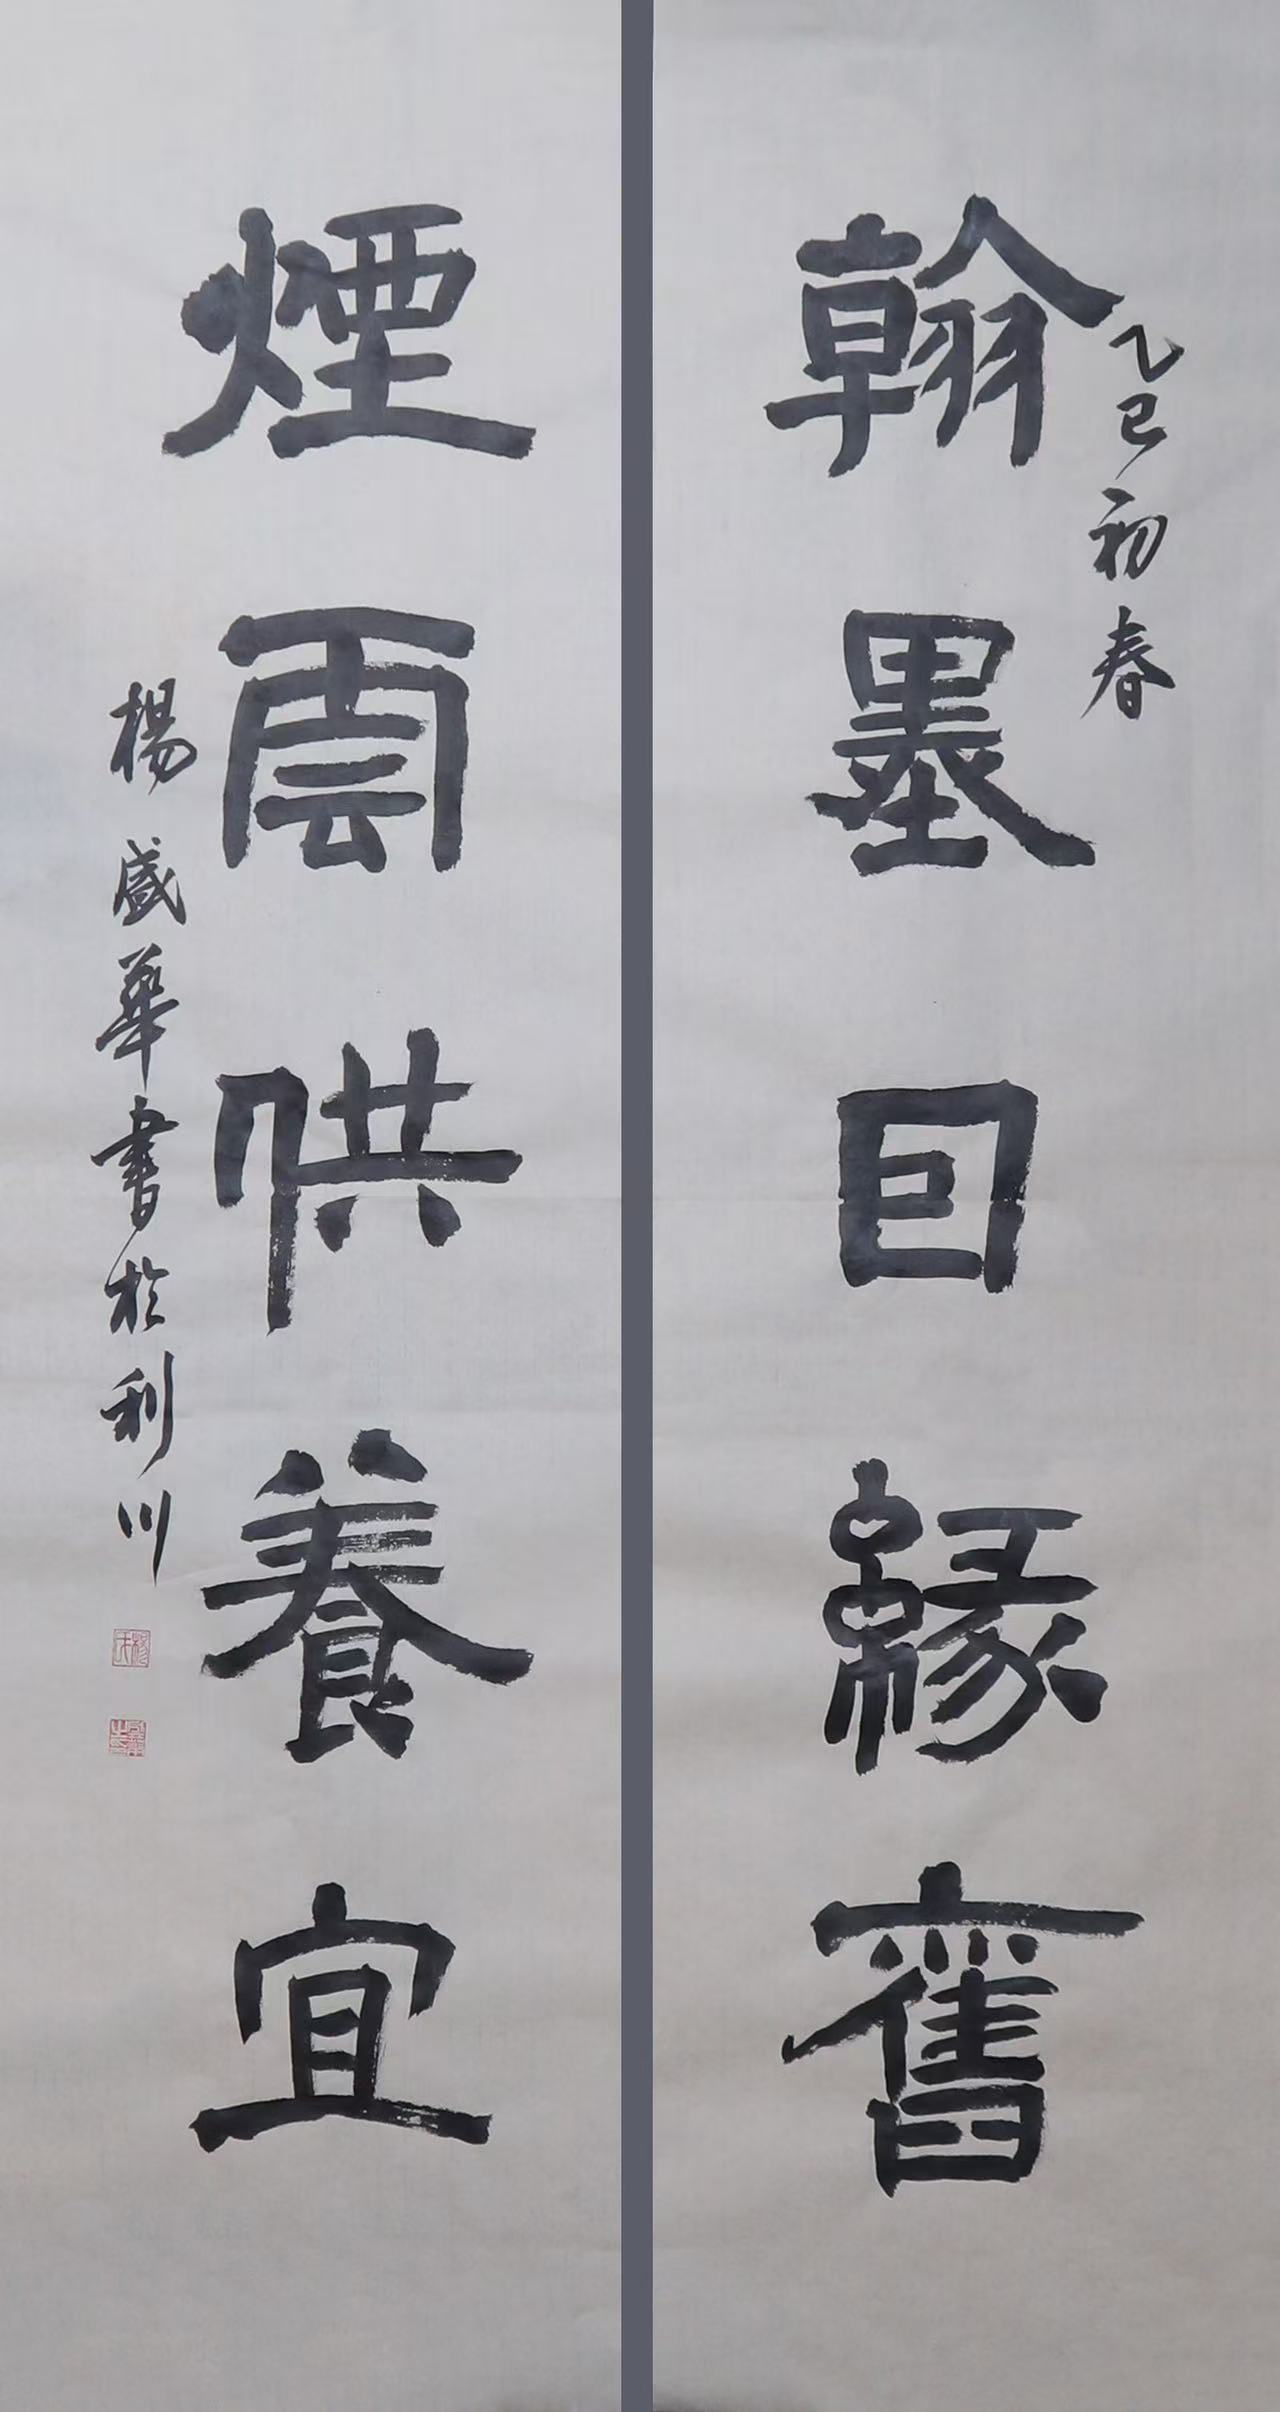 乙巳初春
翰墨囙緣舊
煙雲供養宜
楊盛華書於利川